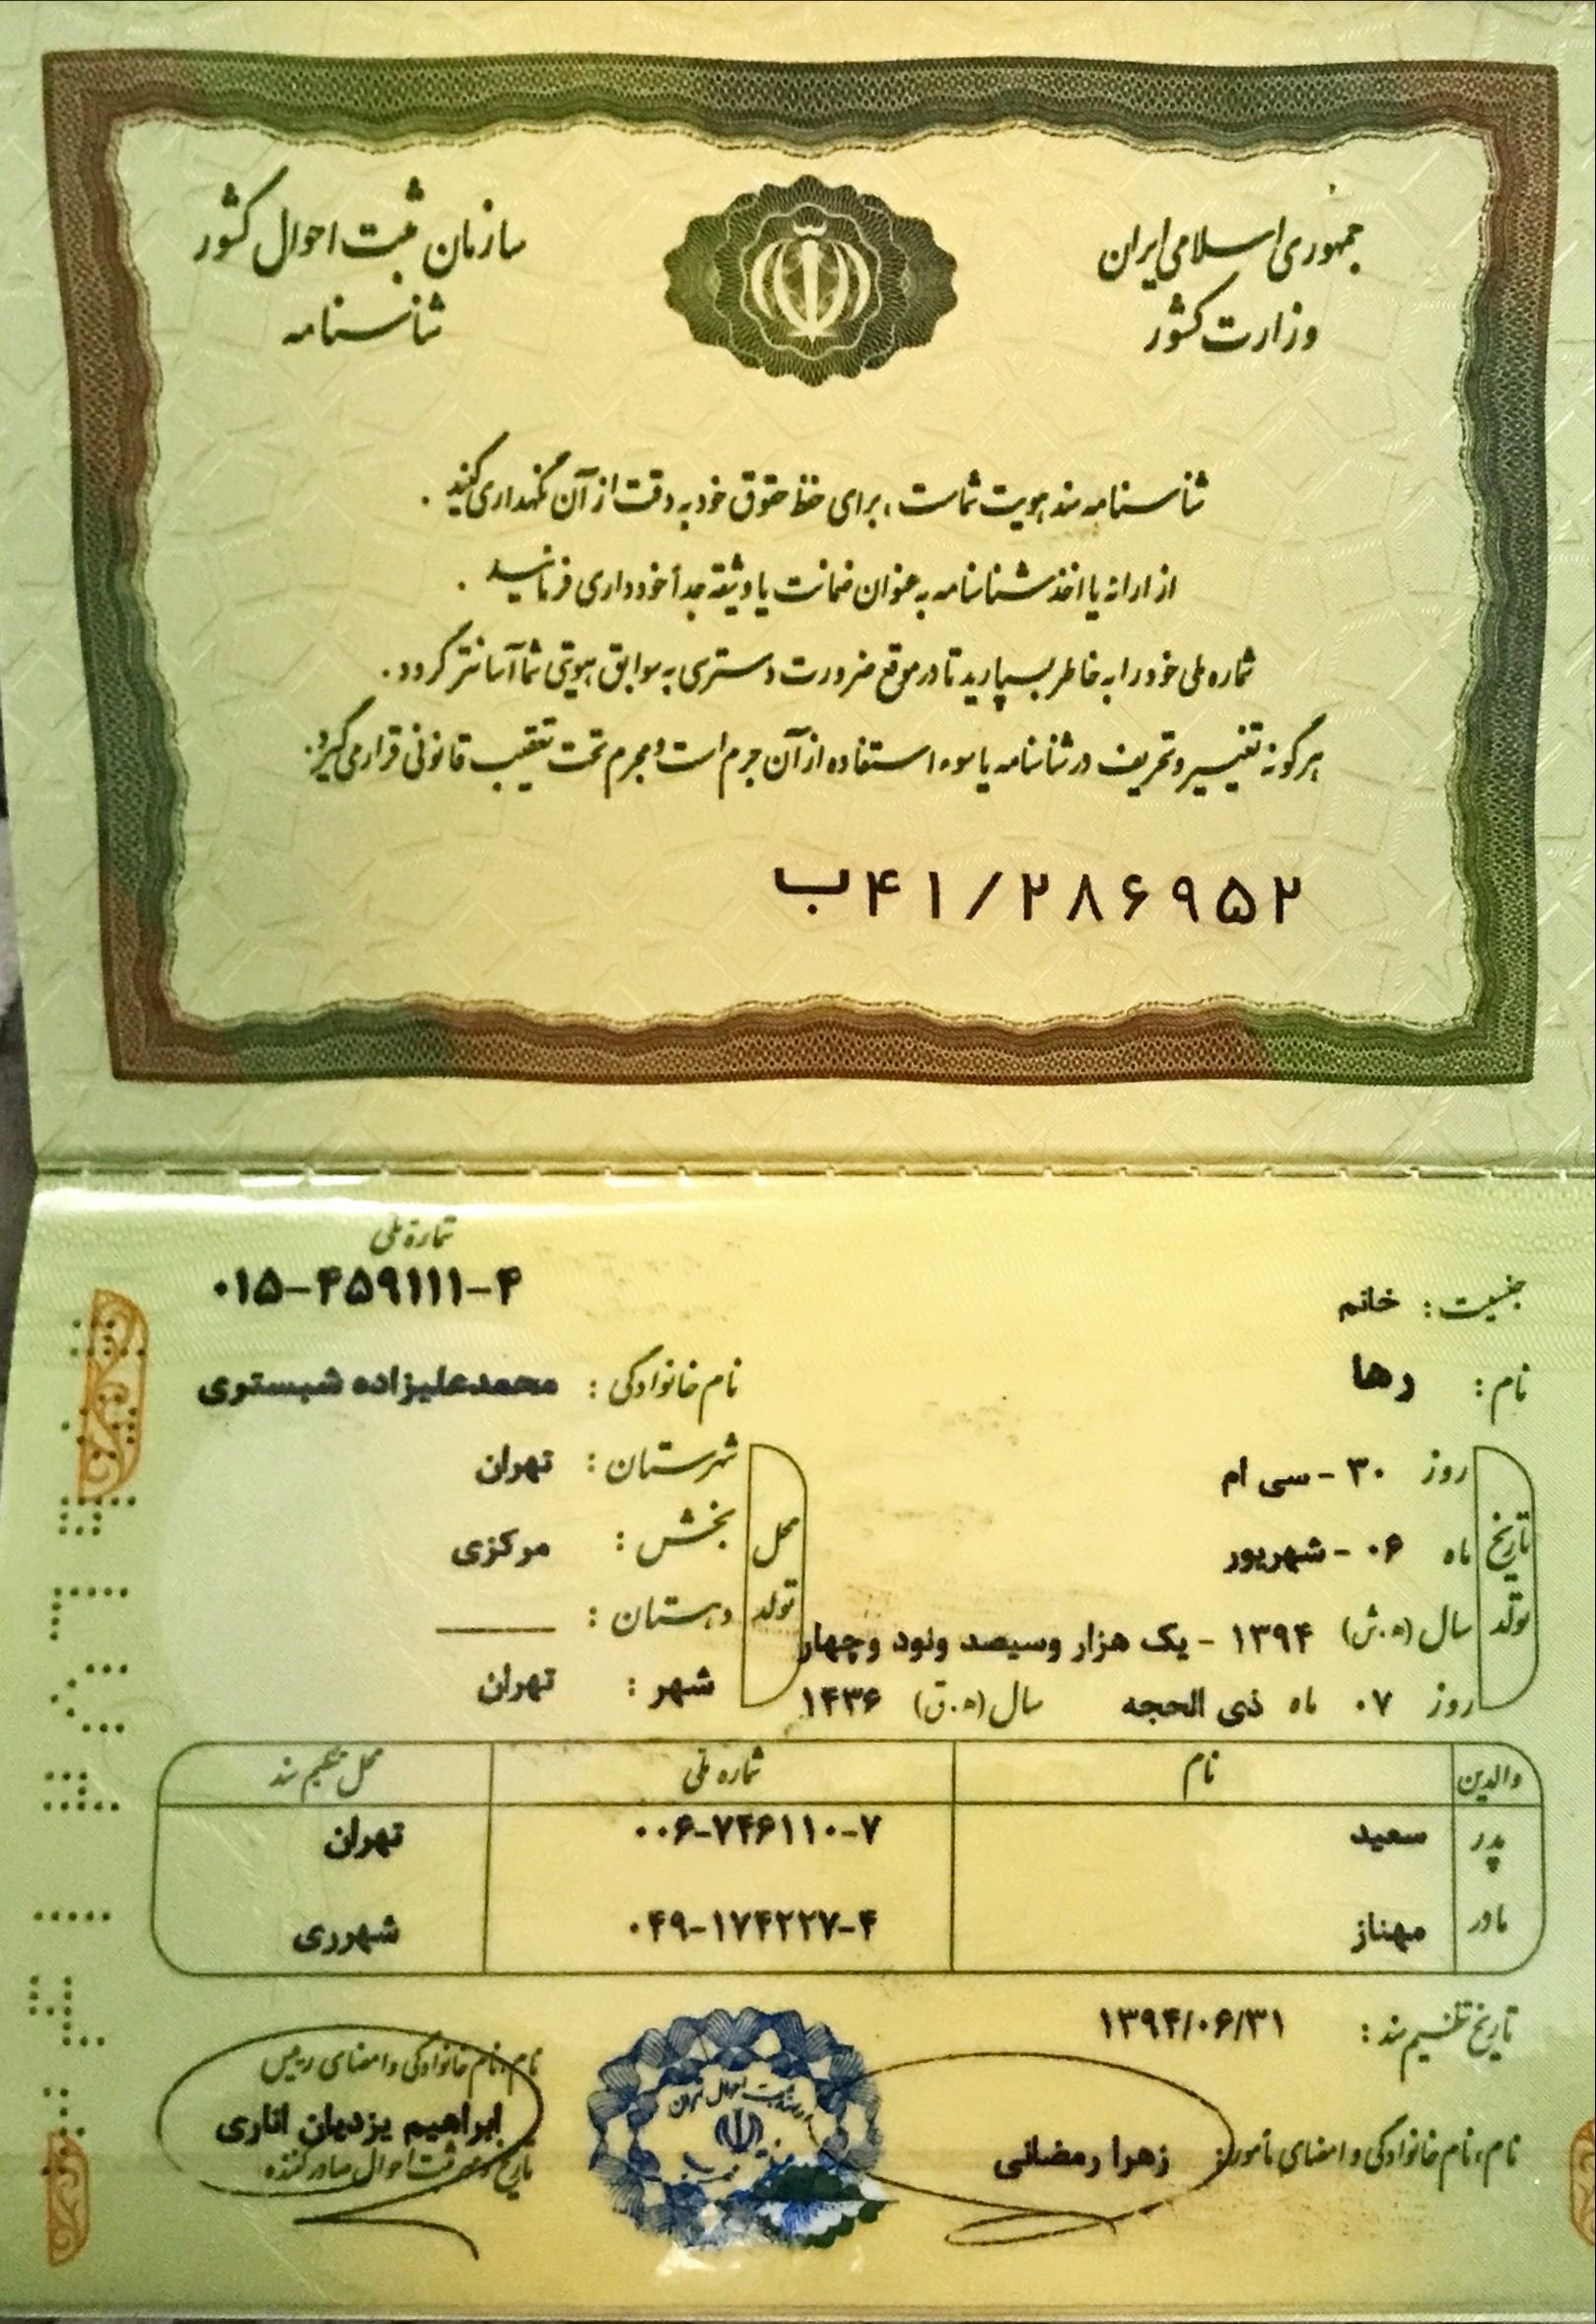 جمهوری اسلامی ایران
وزارت کشور
سازمان ثبت احوال کشور
شناسنامه
شناسنامه سند هویت شماست، برای حفظ حقوق خود به دقت از آن نگهداری کنید.
از ارائه یا اخذ شناسنامه به عنوان ضمانت یا وثیقه جداً خودداری فرمائید.
شماره ملی خود را به خاطر بسپارید تا در موقع ضرورت دسترسی به سوابق هویتی شما آسانتر گردد.
هرگونه تغییر و تحریف در شناسنامه یا سوء استفاده از آن جرم است و مجرم تحت تعقیب قانونی قرار می‌گیرد.
ب۴۱/۲۸۶۹۵۲
شماره ملی
۰۱۵-۴۵۹۱۱۱-۴
جنسیت: خانم
نام: رها
نام خانوادگی: محمدعلیزاده شبستری
تاریخ تولد
روز ۳۰ - سی ام
ماه ۰۶ - شهریور
سال (ه.ش) ۱۳۹۴ - یک هزار وسیصد ونود وچهار
روز ۰۷ ماه ذی الحجه سال (ه.ق) ۱۴۳۶
محل تولد
شهرستان: تهران
بخش: مرکزی
دهستان:
شهر: تهران
والدین نام شماره ملی محل تنظیم سند
پدر سعید ۰۰۶-۷۴۶۱۱۰-۷ تهران
مادر مهناز ۰۴۹-۱۷۴۲۲۷-۴ شهرری
تاریخ تنظیم سند: ۱۳۹۴/۰۶/۳۱
نام، نام خانوادگی و امضای مأمور: زهرا رمضانی
نام، نام خانوادگی و امضای رییس
ابراهیم یزدیان اناری
ثبت احوال صادرکننده